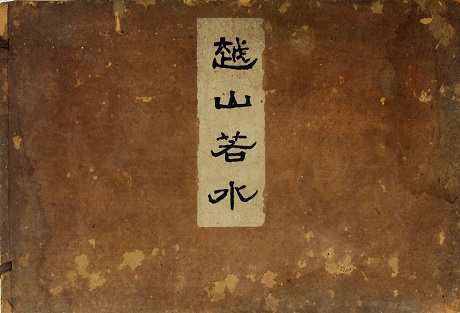 越山若水